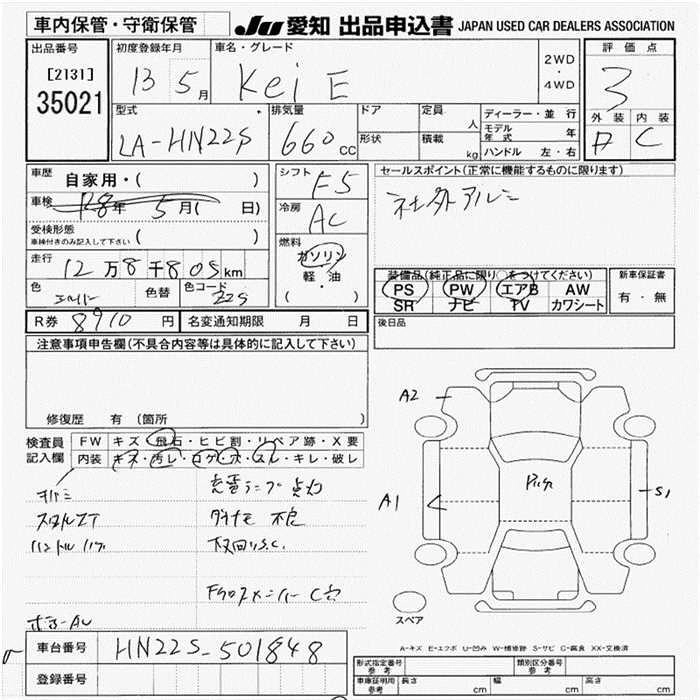 車内保管・守衛保管
JU 愛知 出品申込書 JAPAN USED CAR DEALERS ASSOCIATION
出品番号
[2131]
35021
初度登録年月
13 5月
車名・グレード
Kei E
2WD
・
4WD
評価点
3
外装 内装
A C
型式
LA-HN22S
排気量
660cc
ドア
形状
定員 人
積載 kg
ディーラー・並行
モデル年式 年
ハンドル 左・右
車歴 自家用・( )
車検 R8年 5月( 日)
受検形態
車検付きのみ記入して下さい ( )
走行 12万8千805km
色 色替 色コード ZZS
シフト F5
冷房 AC
燃料
ガソリン
軽・油
( )
セールスポイント(正常に機能するものに限ります)
社外アルミ
装備品(純正品に限り○をつけてください)
PS PW エアB AW
SR ナビ TV カワシート
新車保証書
有・無
R券 8910円 名変通知期限 月 日
後日品
注意事項申告欄(不具合内容等は具体的に記入して下さい)
修復歴 有 (箇所 )
検査員記入欄
FW キズ・飛石・ヒビ割・リペア跡・X要
内装 キズ・汚レ・コゲ・穴・スレ・キレ・破レ
充電ランプ点灯
ダイナモ 不良
下回りS.C.
ハンドル
A2
A1
S1
スペア
A-キズ E-エクボ U-凹み W-補修跡 S-サビ C-腐食 XX-交換済
車台番号 HN22S-501848
登録番号
形式指定番号 参考
類別区分番号 参考
車庫証明用 参考 長さ cm 幅 cm 高さ cm